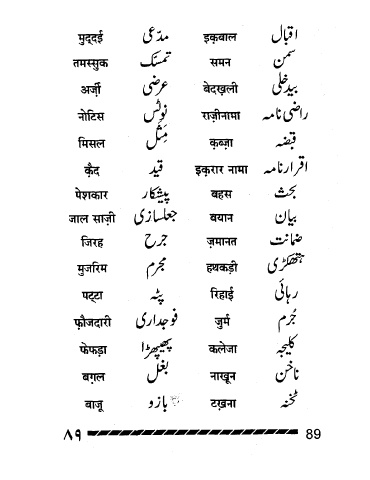 मुद्दई مدّعی इक़बाल اقبال
तमस्सुक تمسّک समन سمن
अर्ज़ी عرضی बेदख़ली بیدخلی
नोटिस نوٹس राज़ीनामा راضی نامہ
मिसल مِثل क़ब्ज़ा قبضہ
क़ैद قید इक़रार नामा اقرارنامہ
पेशकार پیشکار बहस بحث
जाल साज़ी جعلسازی बयान بیان
जिरह جرح ज़मानत ضمانت
मुजरिम مجرم हथकड़ी ہتھکڑی
पट्टा پٹہ रिहाई رہائی
फ़ौजदारी فوجداری जुर्म جُرم
फेफड़ा پھیپھڑا कलेजा کلیجہ
बग़ल بغل नाख़ून ناخن
बाजू بازو टख़ना ٹخنہ
۸۹ 89